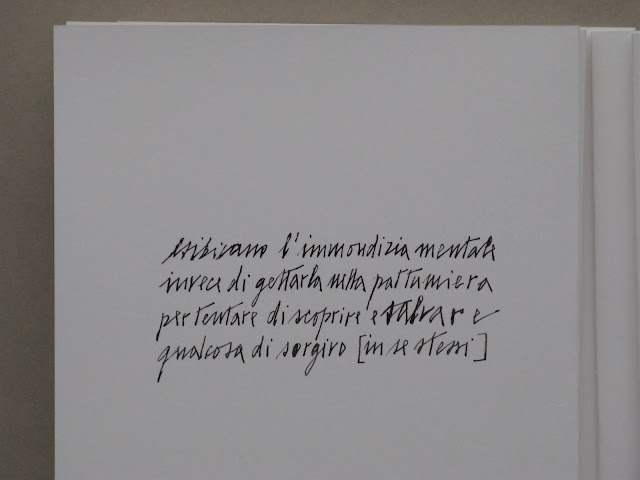 esibicano l'immondizia mentale
invece di gettarla nella pattumiera
per tentare di scoprire e salvare
qualcosa di sorgivo [in se stessi]